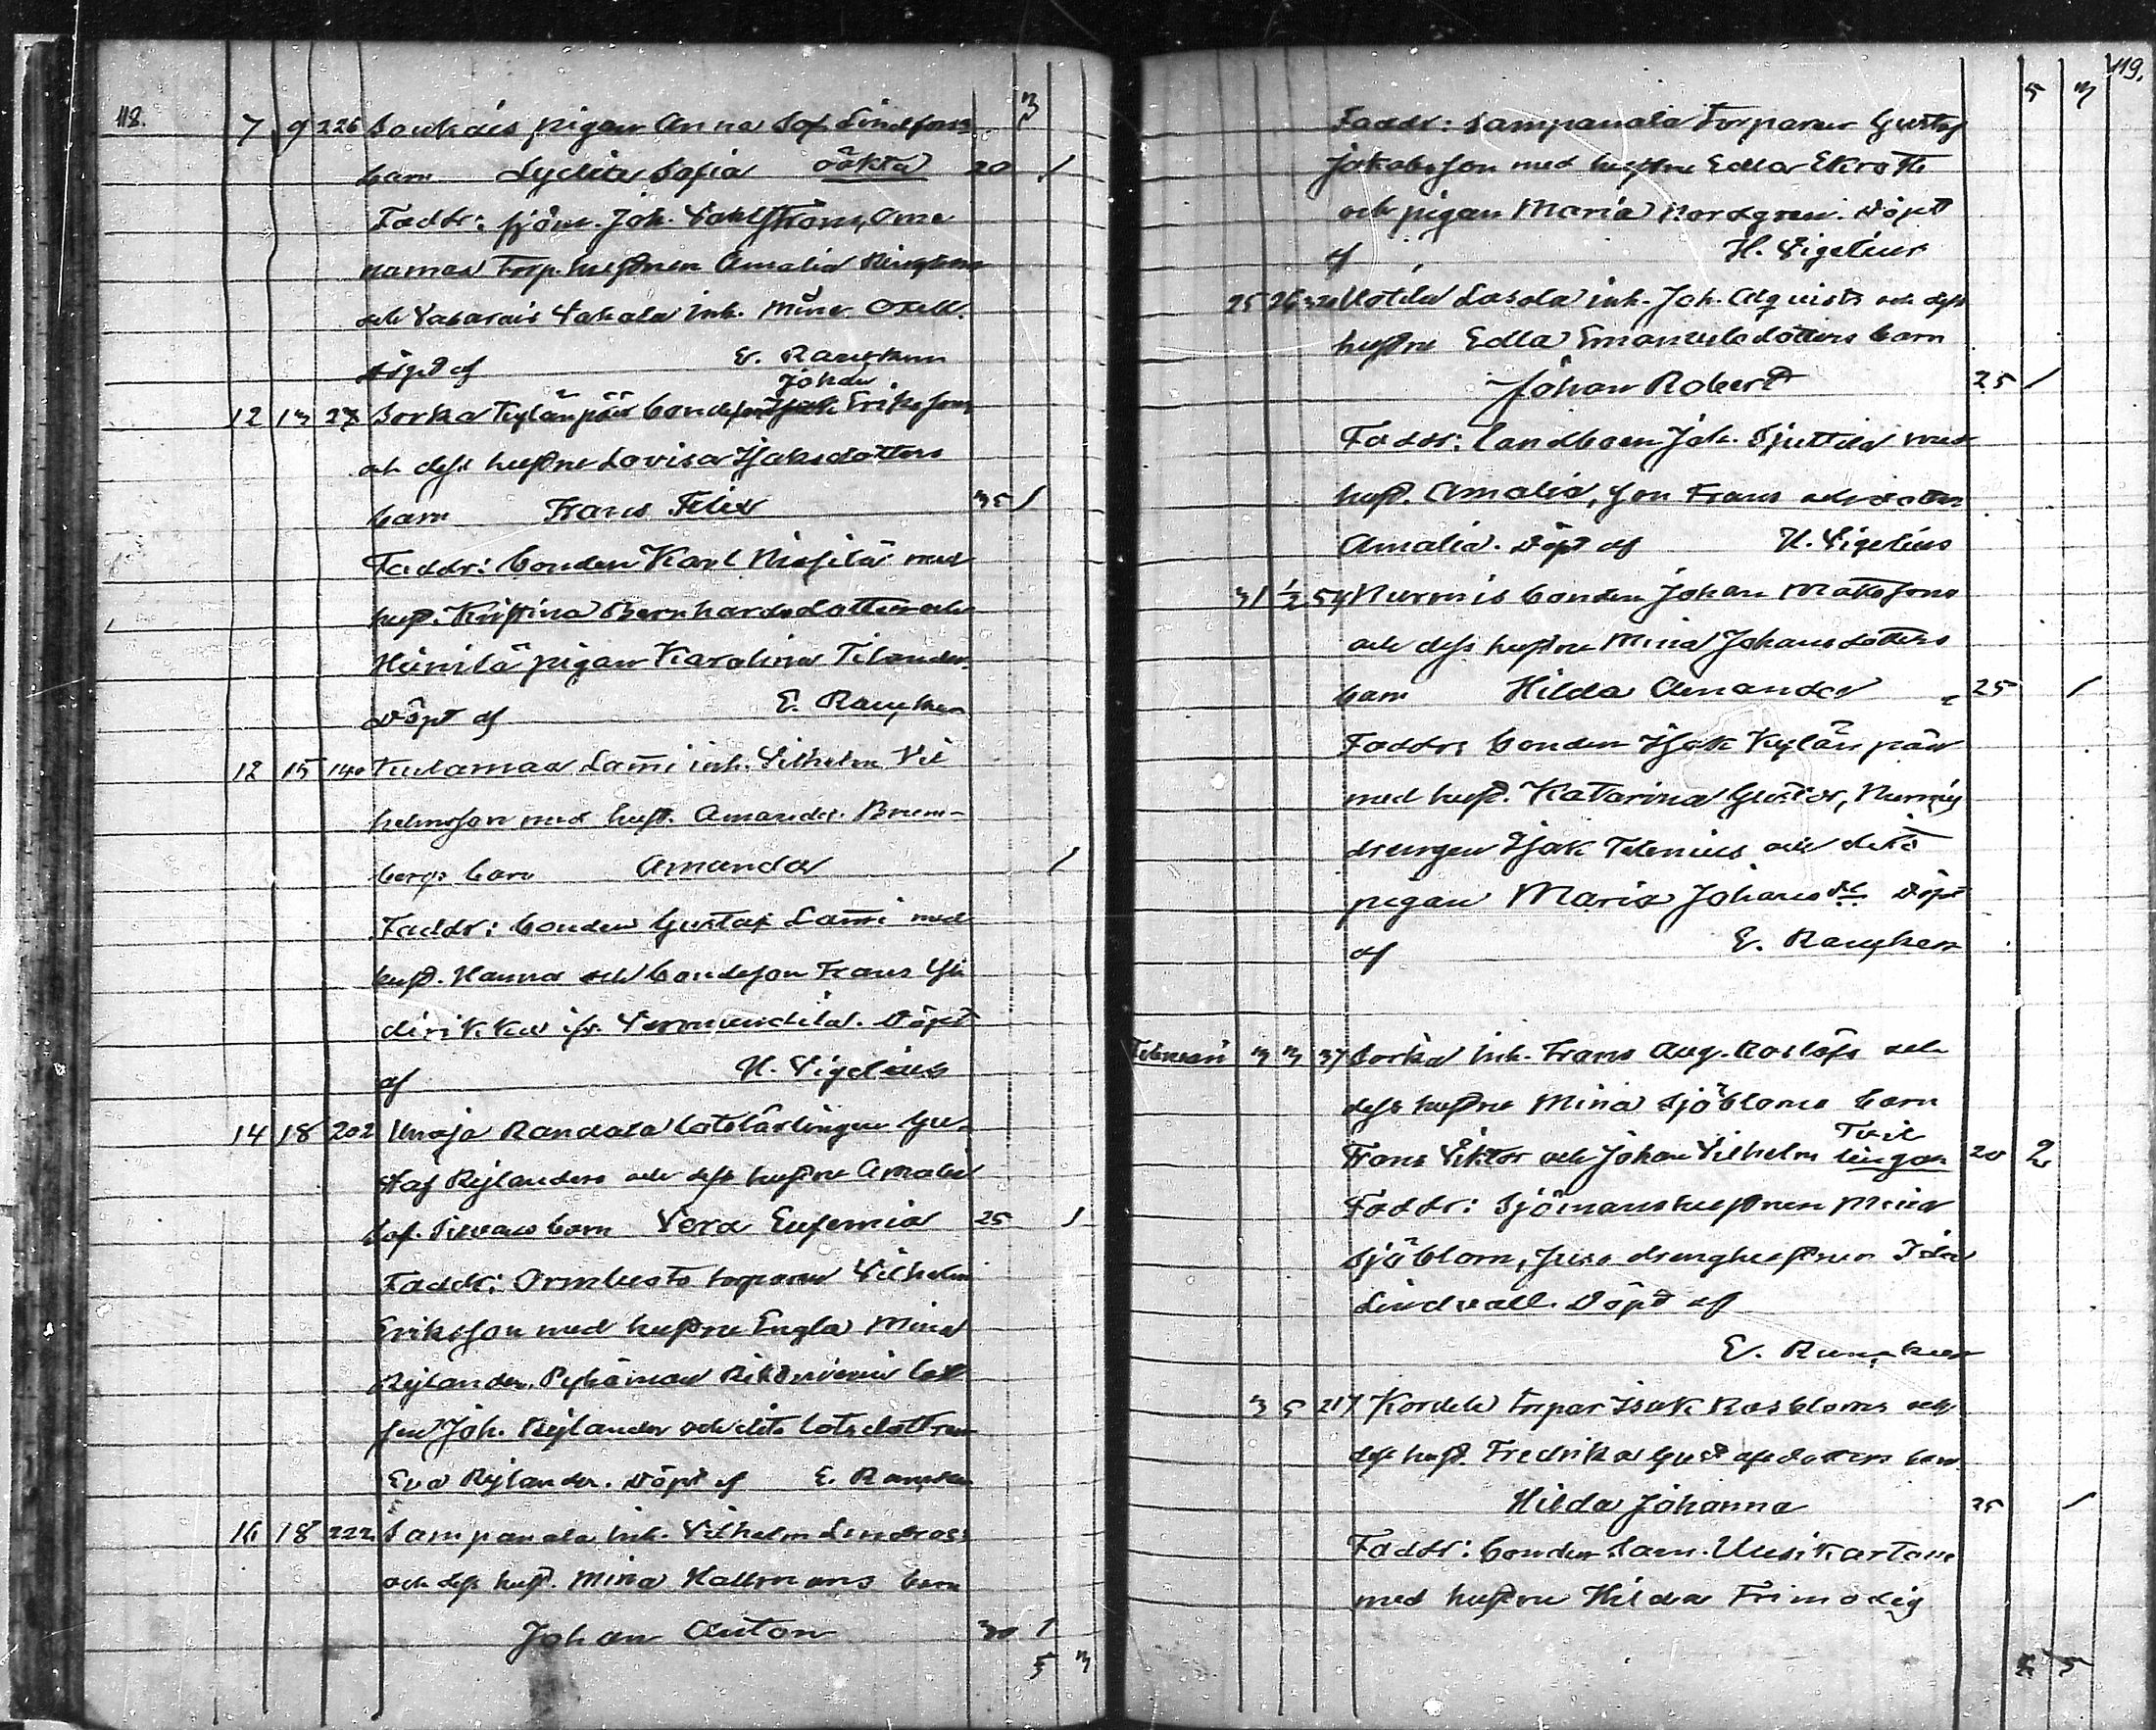 118.
3
7 9 226 Soukais pigan Anna Sof. Lindfors
barn Lydia Sofia oäkta 20 1
Faddr: sjöm. Joh. Vahlström,
Torp. hustrun Amalia
och Vakala inh.
döpt af E. Rancken
Johan
12 13 27 Sorka Kylänpää bondeson Eriksson
och dess hustru Lovisa Isaksdotters
barn Frans Felix 35 1
Faddr: bonden Karl med
hust. Kristina Bernhardsdotter och
Heinilä pigan Karolina Tilander.
Döpt af E. Rancken
12 15 140 Kulamaa Lammi inh. Vilhelm Vil
helmsson med hust. Amanda Brem-
bergs barn Amanda 1
Faddr: bonden Gustaf Lammi med
hust. Hanna och bondeson Frans Yli
dirikka fr. Vermuntila. Döpt
af H. Vigelius
14 18 202 Unaja Randala lotslärlingen Gu-
staf Rylanders och dess hustru Amalia
Sof. barn Vera Eufemia 25 1
Faddr: torparen Vilhelm
Eriksson med hustru Engla Mina
Rylander, Pyhämaa lots
son Joh. Rylander och dito lotsdottren
Eva Rylander. Döpt af E. Rancken
16 18 222 Sampanala inh. Vilhelm Lindroos
och dess hust. Mina Hallmans barn
Johan Anton 30 1
5 3
119.
5 3
Faddr: Sampanala Torparen Gustaf
Jakobsson med hustru Edla Ekroth
och pigan Maria Nordgren. Döpt
af H. Vigelius
25 26 Uotila Sasola inh. Joh. Alqvists och dess
hustru Edla Emanuelsdotters barn
Johan Robert 25 1
Faddr: landboen Joh. Sjuttila med
hust. Amalia, son Frans och dotter
Amalia. Döpt af H. Vigelius
31 1/2 54 Nurmis bonden Johan Mattssons
och dess hustru Mina Johansdotters
barn Hilda Amanda 25 1
Faddr: bonden Isak Kylänpää
med hust. Katarina Nurmis
drengen Isak Telenius och dito
pigan Maria Johansdr. Döpt
af E. Rancken
Februari 3 3 37 Sorka inh. Frans Aug. Roslöfs och
dess hustru Mina Sjöbloms barn
Tvil
Frans Viktor och Johan Vilhelm lingar 20 2
Faddr: Sjömanshustrun Mina
Sjöblom, drenghustrun Ida
Lindvall. Döpt af
E. Rancken
3 5 217 Kordela torpar Isak Rosbloms och
dess hust. Fredrika Gustafsdotters barn
Hilda Johanna 25 1
Faddr: bonden Sam. Uusikartano
med hustru Hilda Frimodig
5